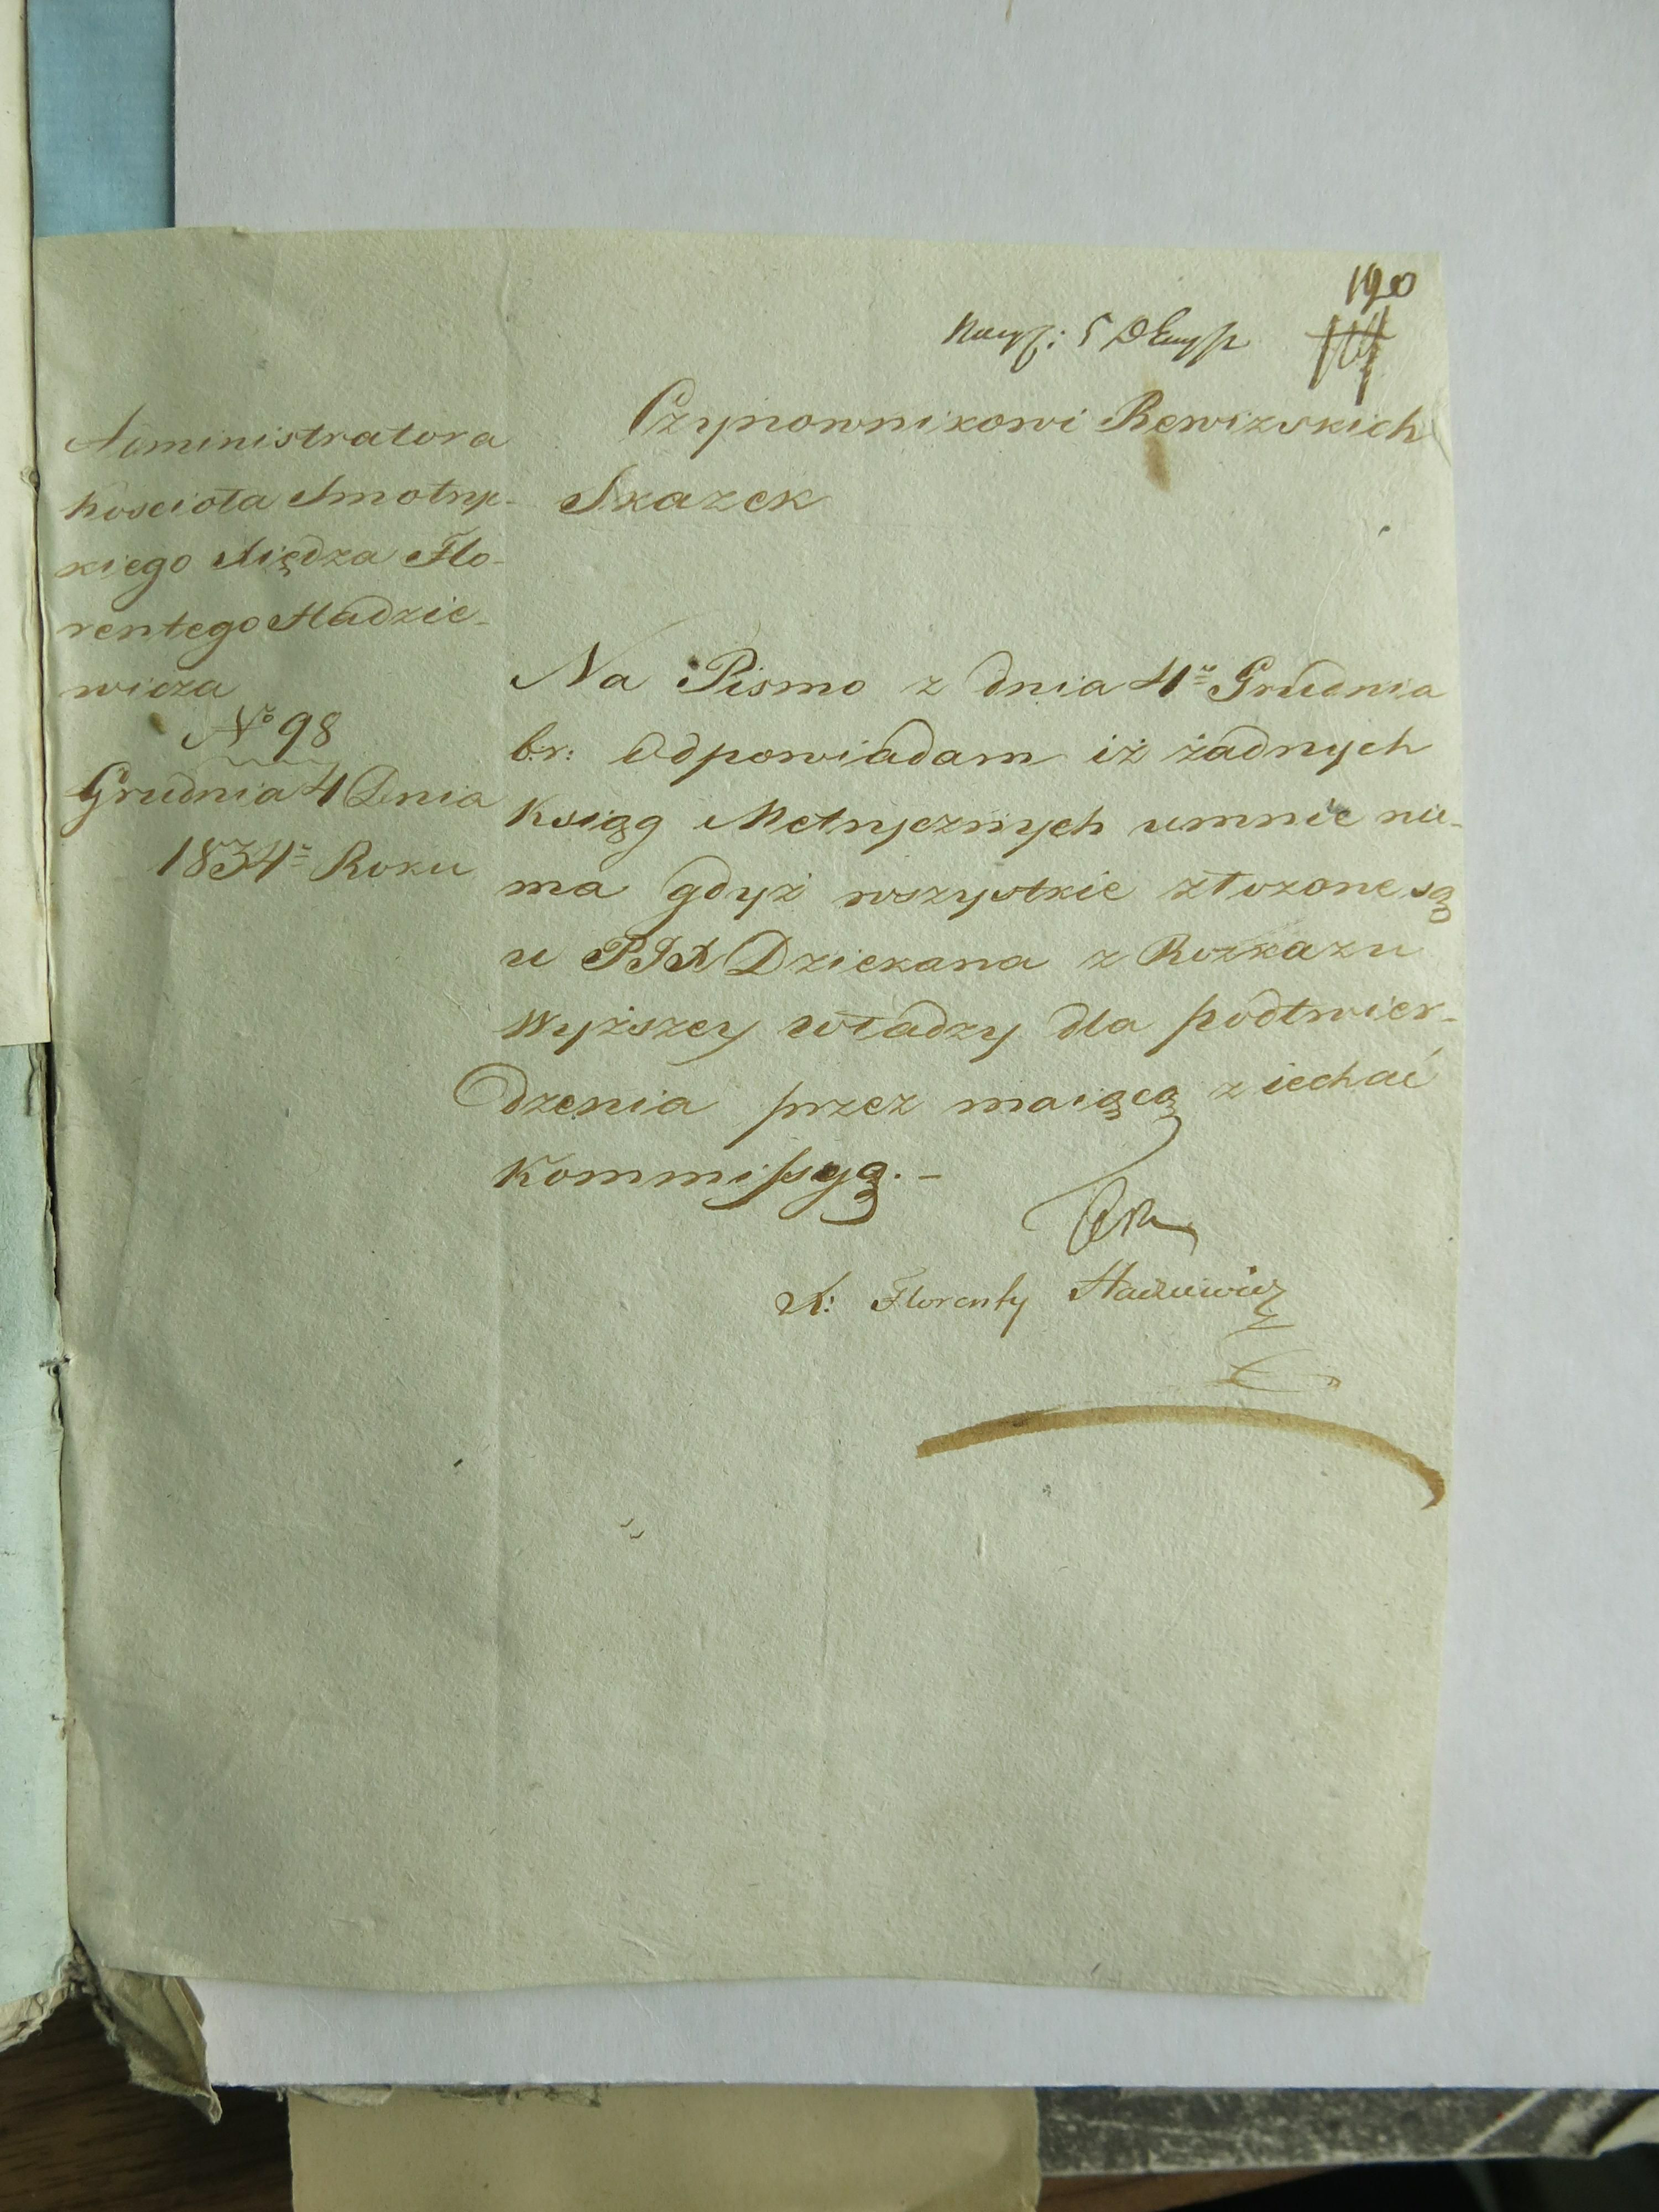 190
Administratora
Kościoła Smotryc-
kiego Xiędza Flo-
rentego Hadzie-
wicza
N° 98
Grudnia 4 Dnia
1834° Roku
Czynownikowi Rewizskich
Skazek
Na Pismo z dnia 4° Grudnia
br: Odpowiadam iż żadnych
Ksiąg Metrycznych umnie nie-
ma gdyż wszystkie złożone są
u Dziekana z Rozkazu
Wyższey władzy dla podtwier-
dzenia przez maiącą ziechać
Kommissyą. -
X: Florenty Hadziewicz